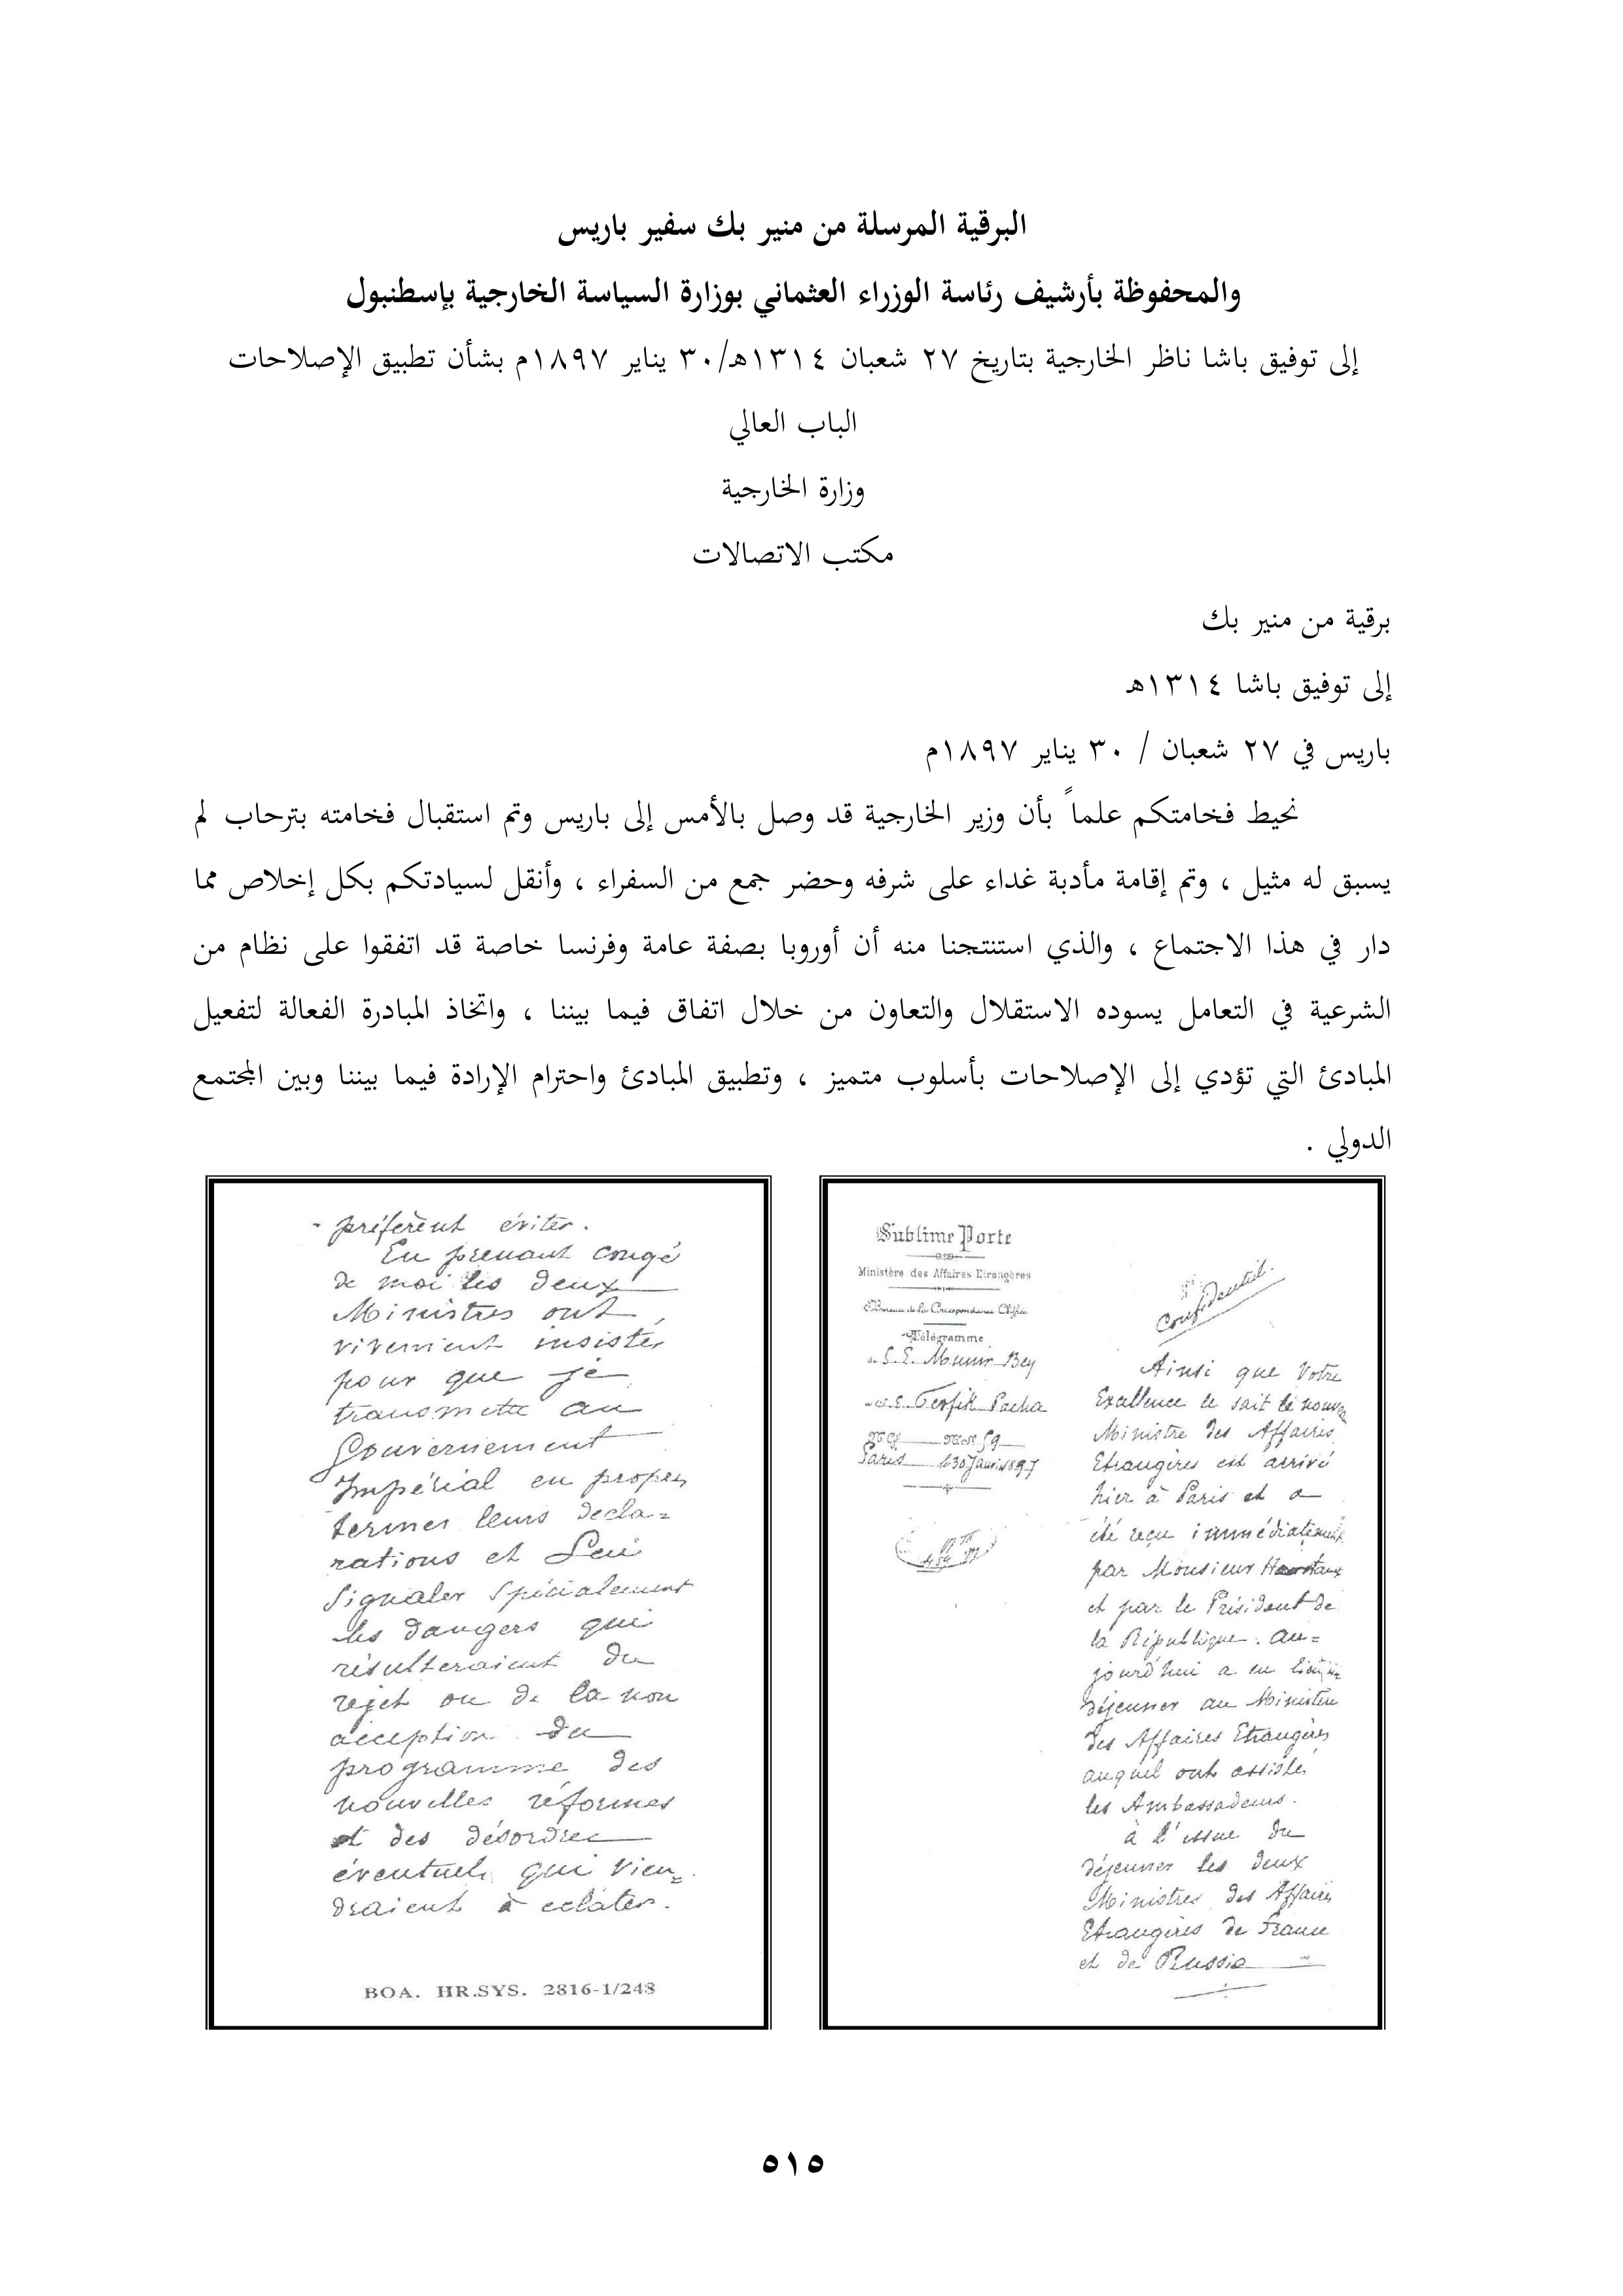 البرقية المرسلة من منير بك سفير باريس
والمحفوظة بأرشيف رئاسة الوزراء العثماني بوزارة السياسة الخارجية بإسطنبول
إلى توفيق باشا ناظر الخارجية بتاريخ ٢٧ شعبان ١٣١٤هـ/٣٠ يناير ١٨٩٧م بشأن تطبيق الإصلاحات
الباب العالي
وزارة الخارجية
مكتب الاتصالات
برقية من منير بك
إلى توفيق باشا ١٣١٤هـ
باريس في ٢٧ شعبان / ٣٠ يناير ١٨٩٧م
نحيط فخامتكم علماً بأن وزير الخارجية قد وصل بالأمس إلى باريس وتم استقبال فخامته بترحاب لم
يسبق له مثيل ، وتم إقامة مأدبة غداء على شرفه وحضر جمع من السفراء ، وأنقل لسيادتكم بكل إخلاص مما
دار في هذا الاجتماع ، والذي استنتجنا منه أن أوروبا بصفة عامة وفرنسا خاصة قد اتفقوا على نظام من
الشرعية في التعامل يسوده الاستقلال والتعاون من خلال اتفاق فيما بيننا ، واتخاذ المبادرة الفعالة لتفعيل
المبادئ التي تؤدي إلى الإصلاحات بأسلوب متميز ، وتطبيق المبادئ واحترام الإرادة فيما بيننا وبين المجتمع
الدولي .
Sublime Porte
Ministère des Affaires Etrangères
Bureau de la Correspondance Chiffrée
Télégramme
de S. E. Munir Bey
à S. E. Tevfik Pacha
Paris le 30 Janvier 1897
Confidentiel.
Ainsi que Votre
Excellence le sait le nouveau
Ministre des Affaires
Etrangères est arrivé
hier à Paris et a
été reçu immédiatement
par Monsieur Hanotaux
et par le Président de
la République. Au=
jourd'hui a eu lieu un
déjeuner au Ministère
des Affaires Etrangères
auquel ont assisté
les Ambassadeurs.
à l'issue du
déjeuner les deux
Ministres des Affaires
Etrangères de France
et de Russie
préfèrent éviter.
En prenant congé
de moi les deux
Ministres ont
vivement insisté
pour que je
transmette au
Gouvernement
Impérial en propres
termes leurs décla=
rations et Lui
signaler spécialement
les dangers qui
résulteraient du
rejet ou de la non
acception du
programme des
nouvelles réformes
et des désordres
éventuels qui vien=
draient à éclater.
BOA. HR.SYS. 2816-1/248
٥١٥